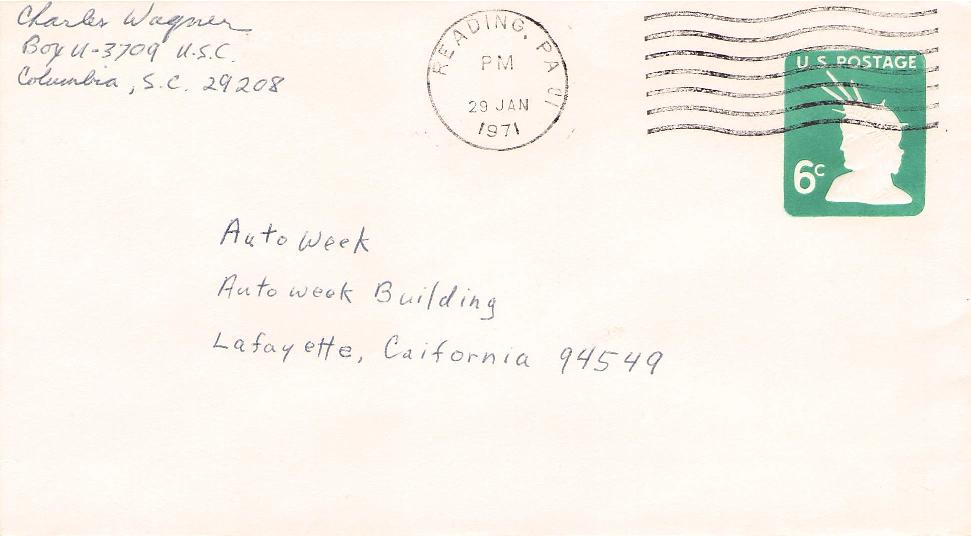 Charles Wagner
Box U-3709 U.S.C.
Columbia, S.C. 29208
READING, PA 01
PM
29 JAN
1971
U.S. POSTAGE
6c
Auto Week
Auto week Building
Lafayette, Caifornia 94549